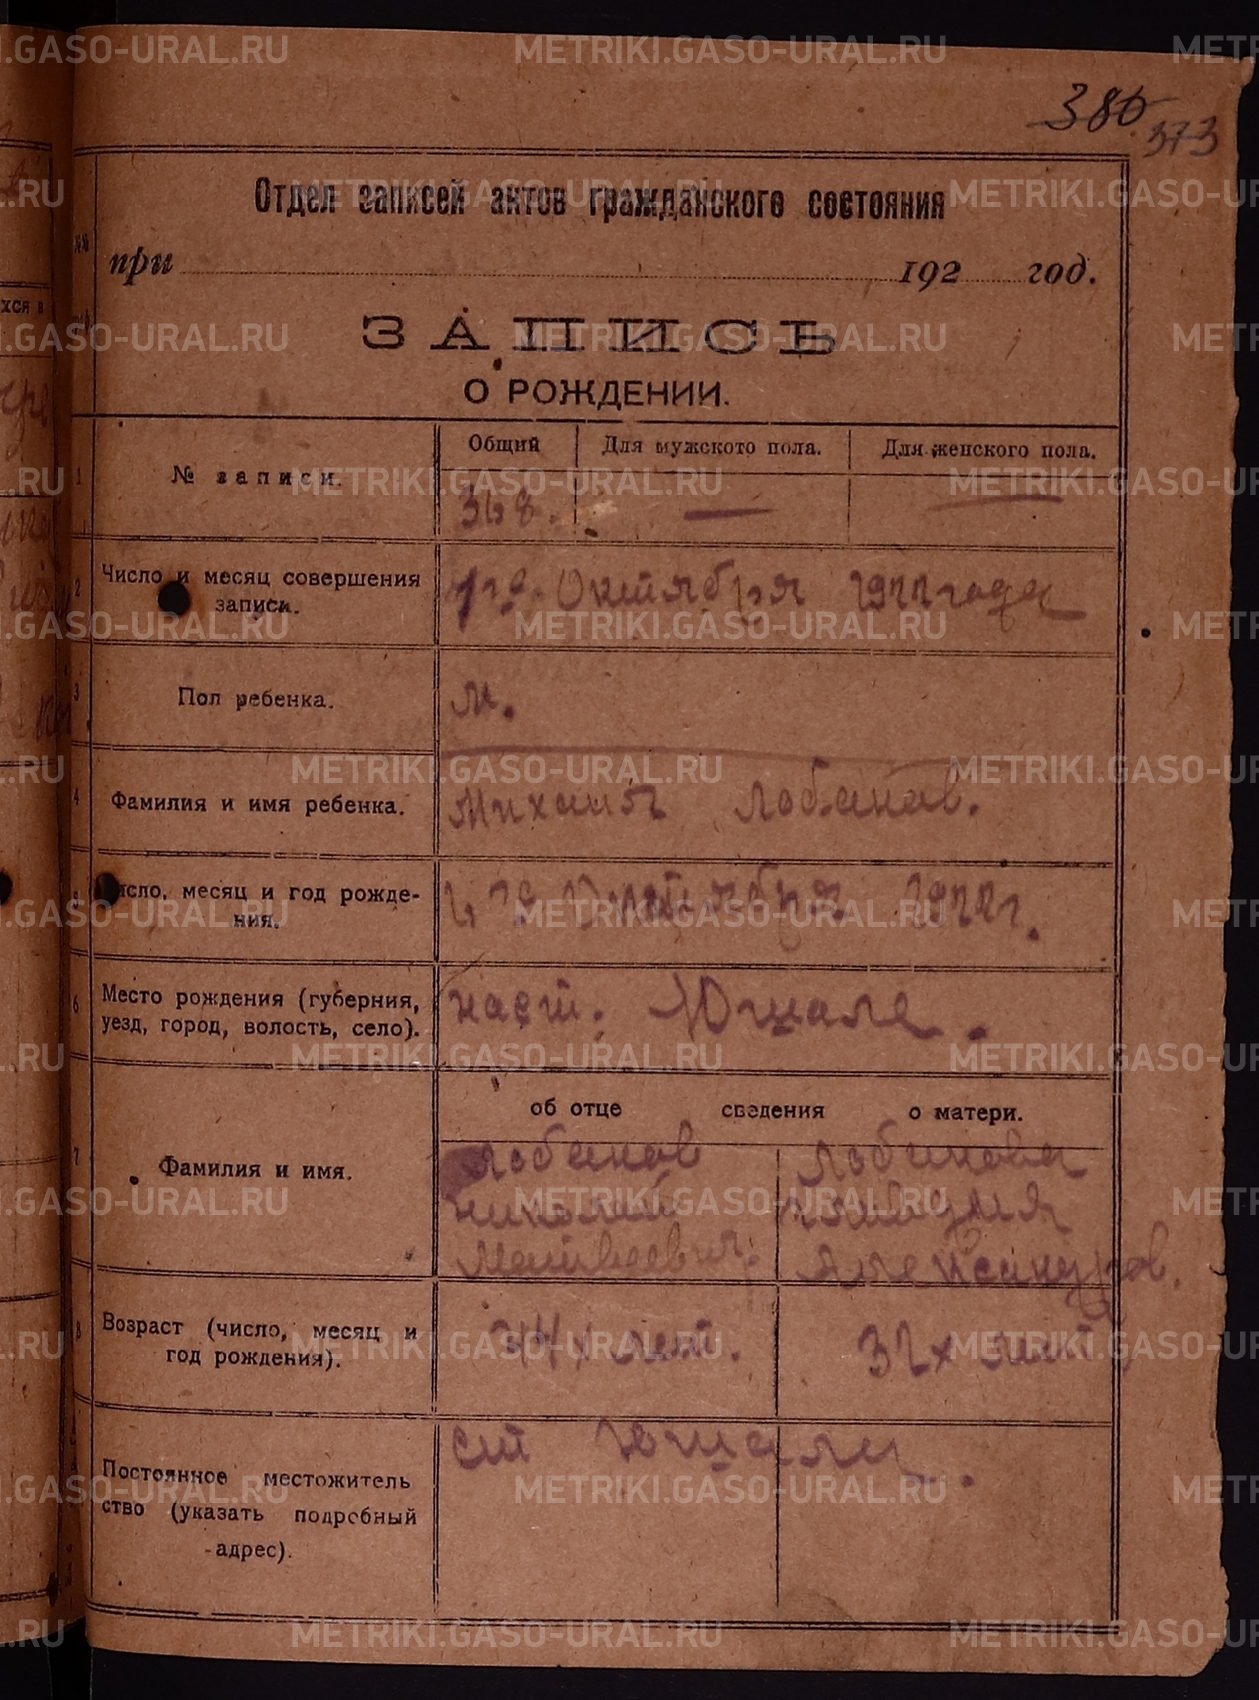 380 373
Отдел записей актов гражданского состояния
при 192 год.
ЗАПИСЬ
О РОЖДЕНИИ.
Общий Для мужского пола. Для женского пола.
1 № записи. 368. — —
2 Число и месяц совершения Октября 1922 года
записи.
3 Пол ребенка. м.
4 Фамилия и имя ребенка. Михаил Лобанов.
5 число, месяц и год рожде- Октября 1922 г.
ния.
6 Место рождения (губерния, Юшала.
уезд, город, волость, село).
об отце сведения о матери.
7 Фамилия и имя. Лобанов Лобанова
Николай
Матвеевич. Александров.
8 Возраст (число, месяц и лет. 32х лет
год рождения).
ст Юшала.
Постоянное местожитель
ство (указать подробный
адрес).
METRIKI.GASO-URAL.RU